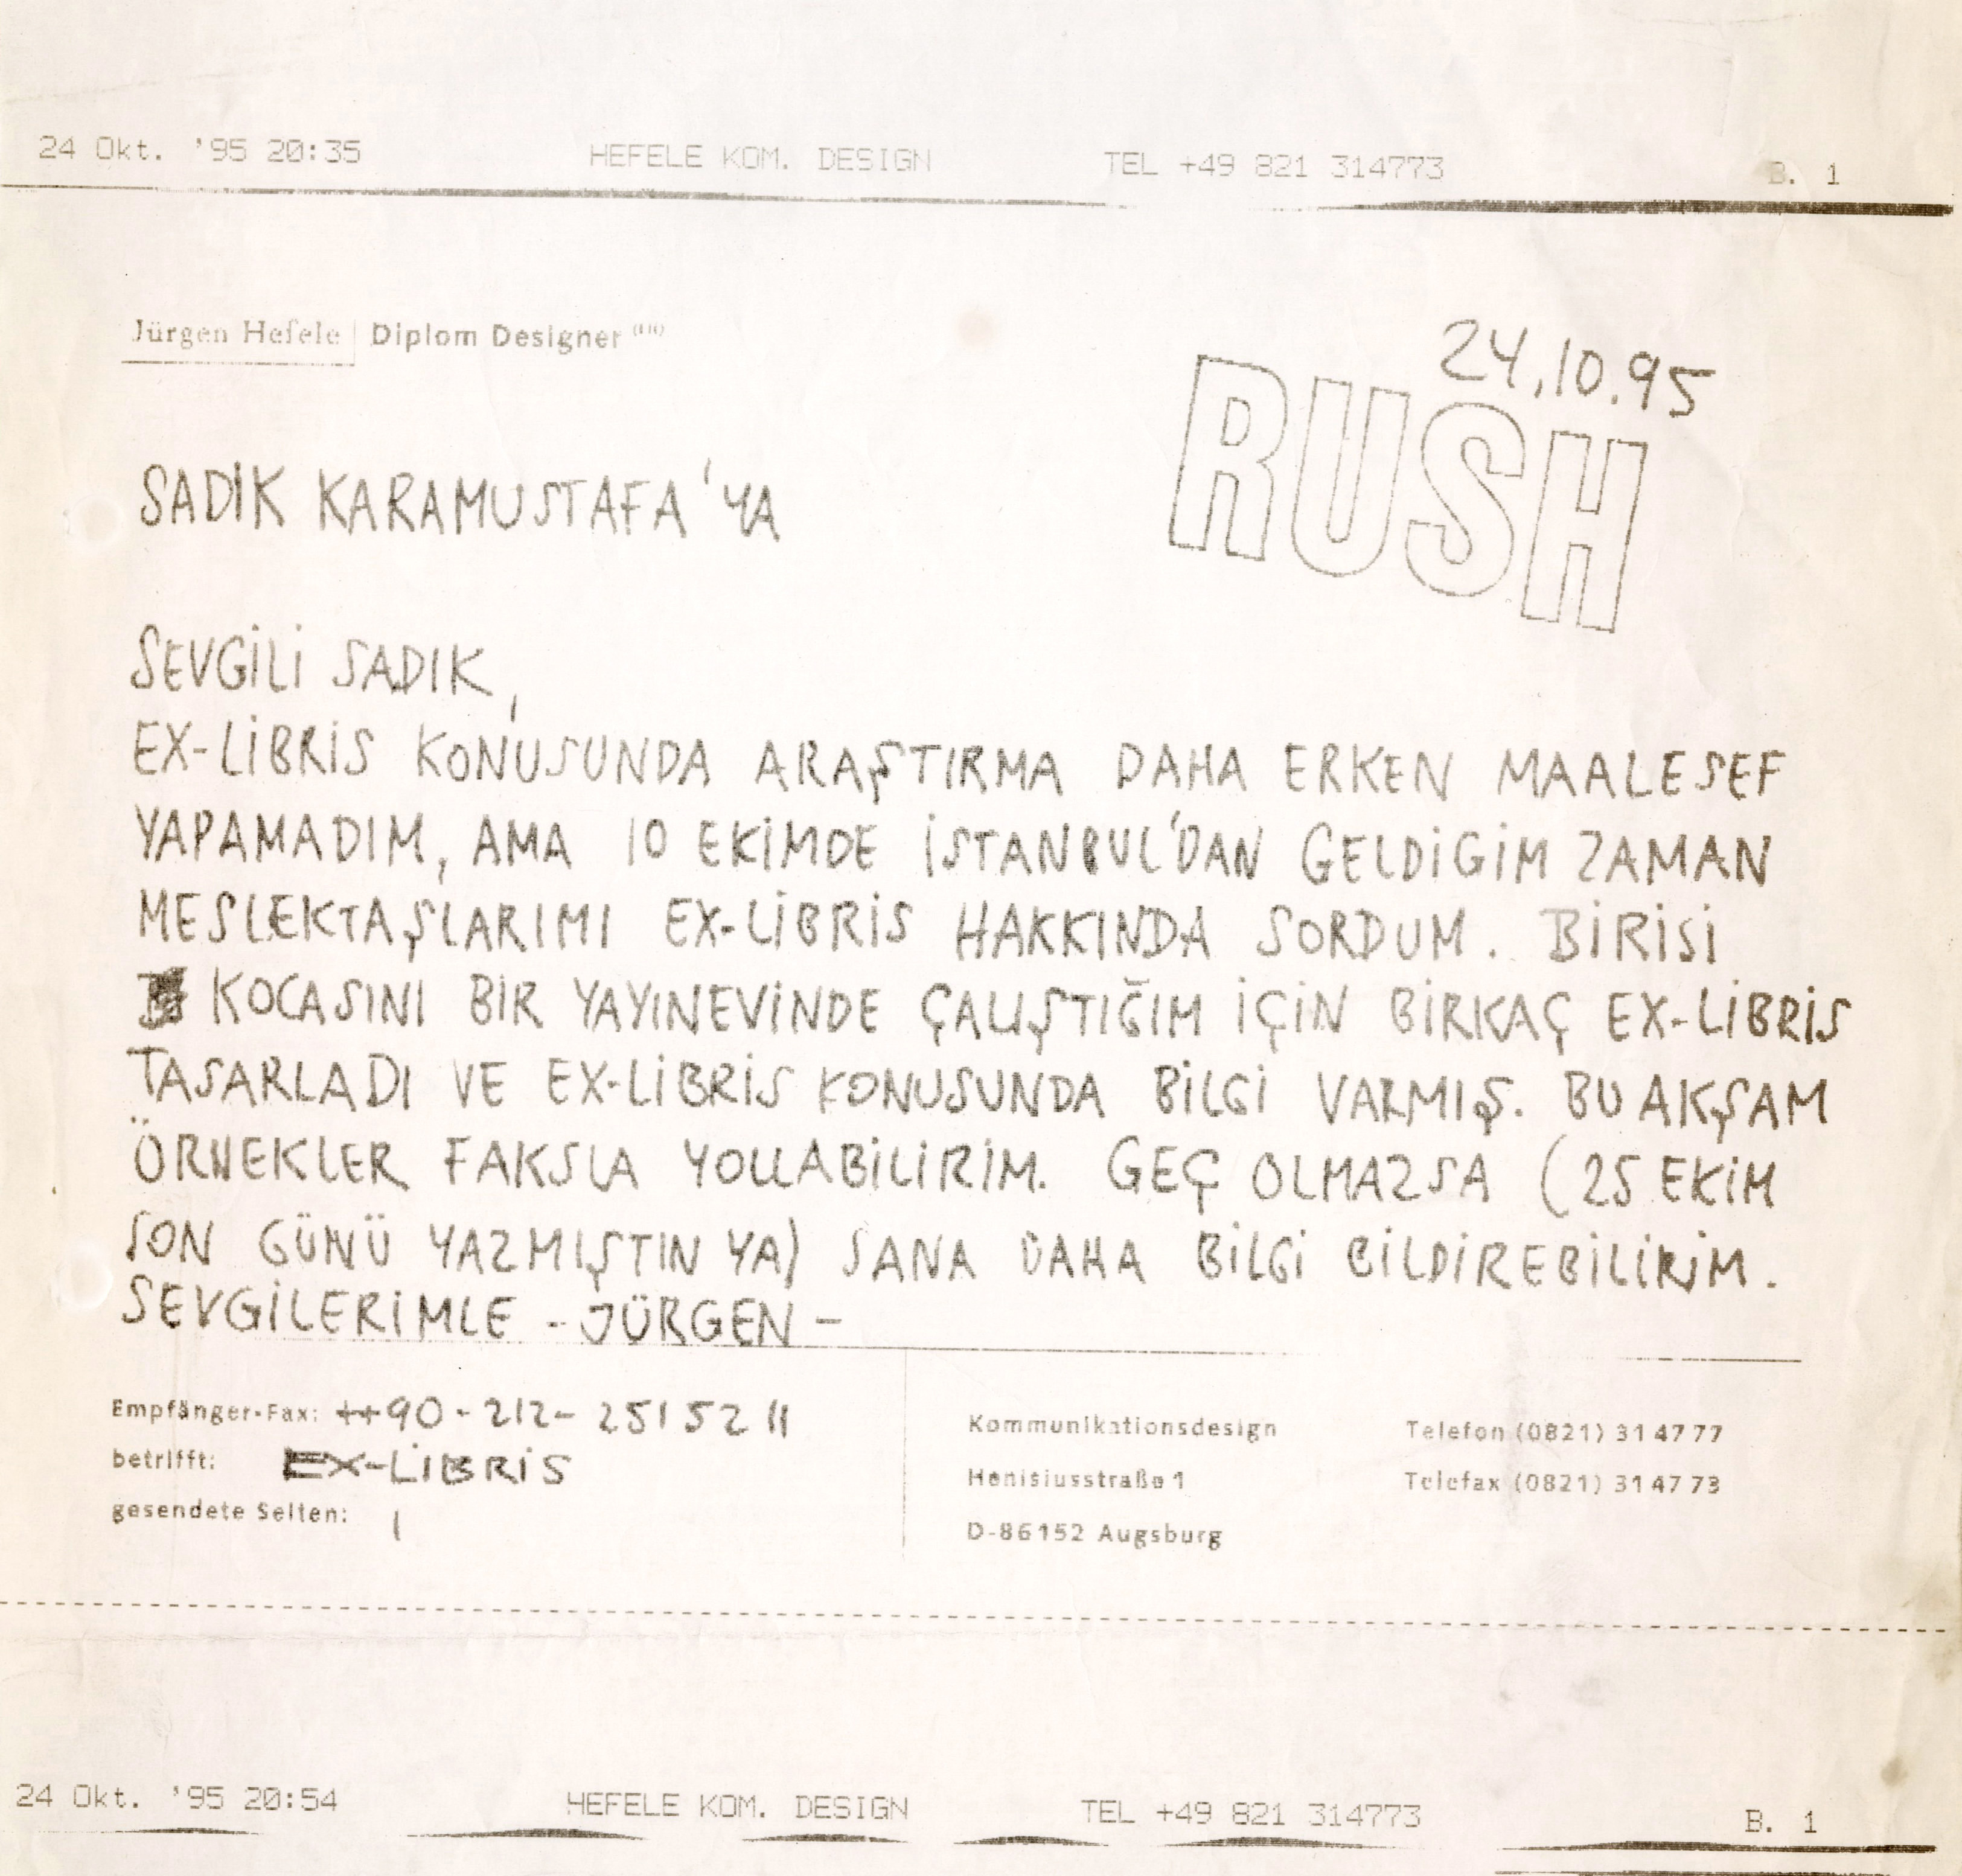 24 Okt. '95 20:35 HEFELE KOM. DESIGN TEL +49 821 314773 B. 1
Jürgen Hefele | Diplom Designer
24.10.95
RUSH
SADIK KARAMUSTAFA'YA
SEVGİLİ SADIK,
EX-LİBRİS KONUSUNDA ARAŞTIRMA DAHA ERKEN MAALESEF
YAPAMADIM, AMA 10 EKİMDE İSTANBUL'DAN GELDİGİM ZAMAN
MESLEKTAŞLARIMI EX-LİBRİS HAKKINDA SORDUM. BİRİSİ
KOCASINI BİR YAYINEVİNDE ÇALIŞTIĞIM İÇİN BİRKAÇ EX-LİBRİS
TASARLADI VE EX-LİBRİS KONUSUNDA BİLGİ VARMIŞ. BU AKŞAM
ÖRNEKLER FAKSLA YOLLABİLİRİM. GEÇ OLMAZSA (25 EKİM
SON GÜNÜ YAZMIŞTIN YA) SANA DAHA BİLGİ BİLDİREBİLİRİM.
SEVGİLERİMLE - JÜRGEN -
Empfänger-Fax: ++90-212- 251 52 11
betrifft: EX-LİBRİS
gesendete Seiten: 1
Kommunikationsdesign
Henisiusstraße 1
D-86152 Augsburg
Telefon (0821) 31 47 77
Telefax (0821) 31 47 73
24 Okt. '95 20:54 HEFELE KOM. DESIGN TEL +49 821 314773 B. 1